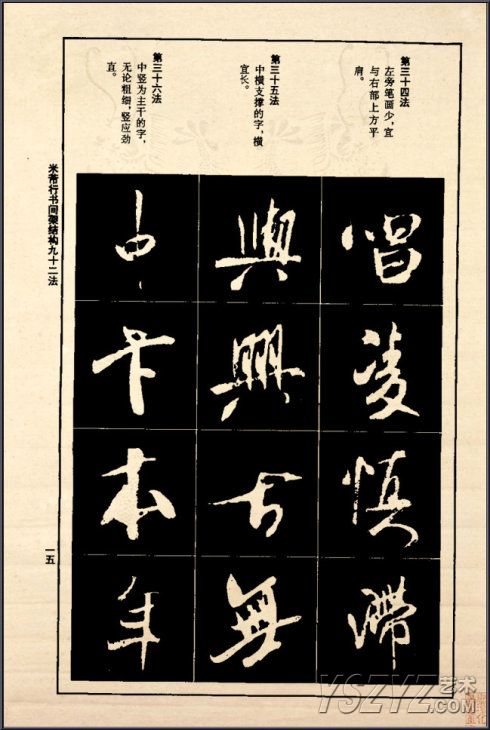 第三十四法
左旁笔画少，宜
与右部上方平
肩。
唱
凌
慎
滞
第三十五法
中横支撑的字，横
宜长。
與
興
古
無
第三十六法
中竖为主干的字，
无论粗细，竖应劲
直。
本
年
米芾行书间架结构九十二法
一五
YSZYZ艺术
.COM